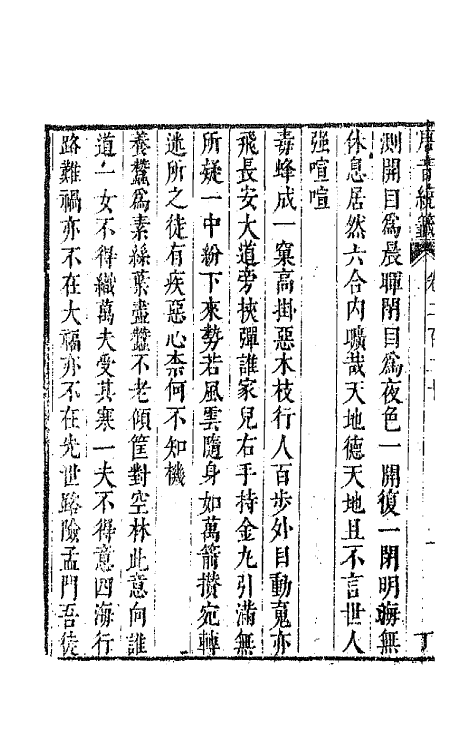 唐音統籖 卷二百二十
測開目爲晨暉閉目爲夜色一開復一閉明晦無
休息居然六合内曠哉天地德天地且不言世人
强喧喧
毒蜂成一窠高掛惡木枝行人百步外目動䰟亦
飛長安大道旁挾彈誰家兒右手持金九引滿無
所疑一中紛下來勢若風雲隨身如萬箭攅宛轉
迷所之徒有疾惡心柰何不知機
養蠶爲素絲葉盡蠶不老傾筐對空林此意向誰
道一女不得織萬夫受其寒一夫不得意四海行
路難禍亦不在大福亦不在先世路險孟門吾徒